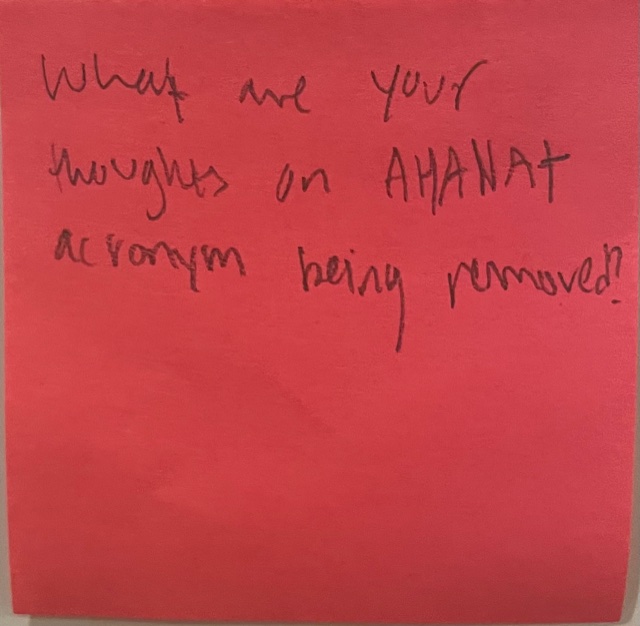 What are your
thoughts on AHANA+
acronym being removed?